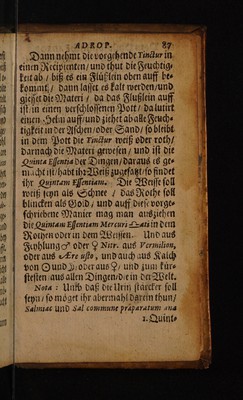 ADROP. 87
Dann nehmt die vorgehende Tinctur in
einen Recipienten/ und thut die Feuchtig-
keit ab / biß es ein Flüßlein oben auff be-
kommt / dann lasset es kalt werden/ und
giesset die Materi / da das Flüßlein auff
ist in einen verschlossenen Pott / da lutirt
einen Helm auff/ und ziehet ab alle Feuch-
tigkeit in der Aschen/ oder Sand / so bleibt
in dem Pott die Tinctur weiß oder roth/
darnach die Materi gewesen / und ist die
Quinta Essentia der Dingen/ daraus es ge-
macht ist/ habt ihr Weiß zugesetzt/ so findet
ihr Quintam Essentiam. Die Weisse soll
weiß seyn als Schnee / das Rothe soll
blincken als Gold / und auff diese vorge-
schriebene Manier mag man ausziehen
die Quintam Essentiam Mercuri in dem
Rothen oder in dem Weissen. Und aus
♂ oder ♀ Nitr. aus Vermilion,
oder aus Ære usto, und auch aus Kalch
von ☉ und ☽/ oder aus ♀/ und zum kür-
tzesten aus allen Dingen/ die in der Welt.
Nota: Und/ daß die Urin starcker soll
seyn / so möget ihr abermahl darein thun/
Salmiac und Sal commune præparatum ana
2. Quint-